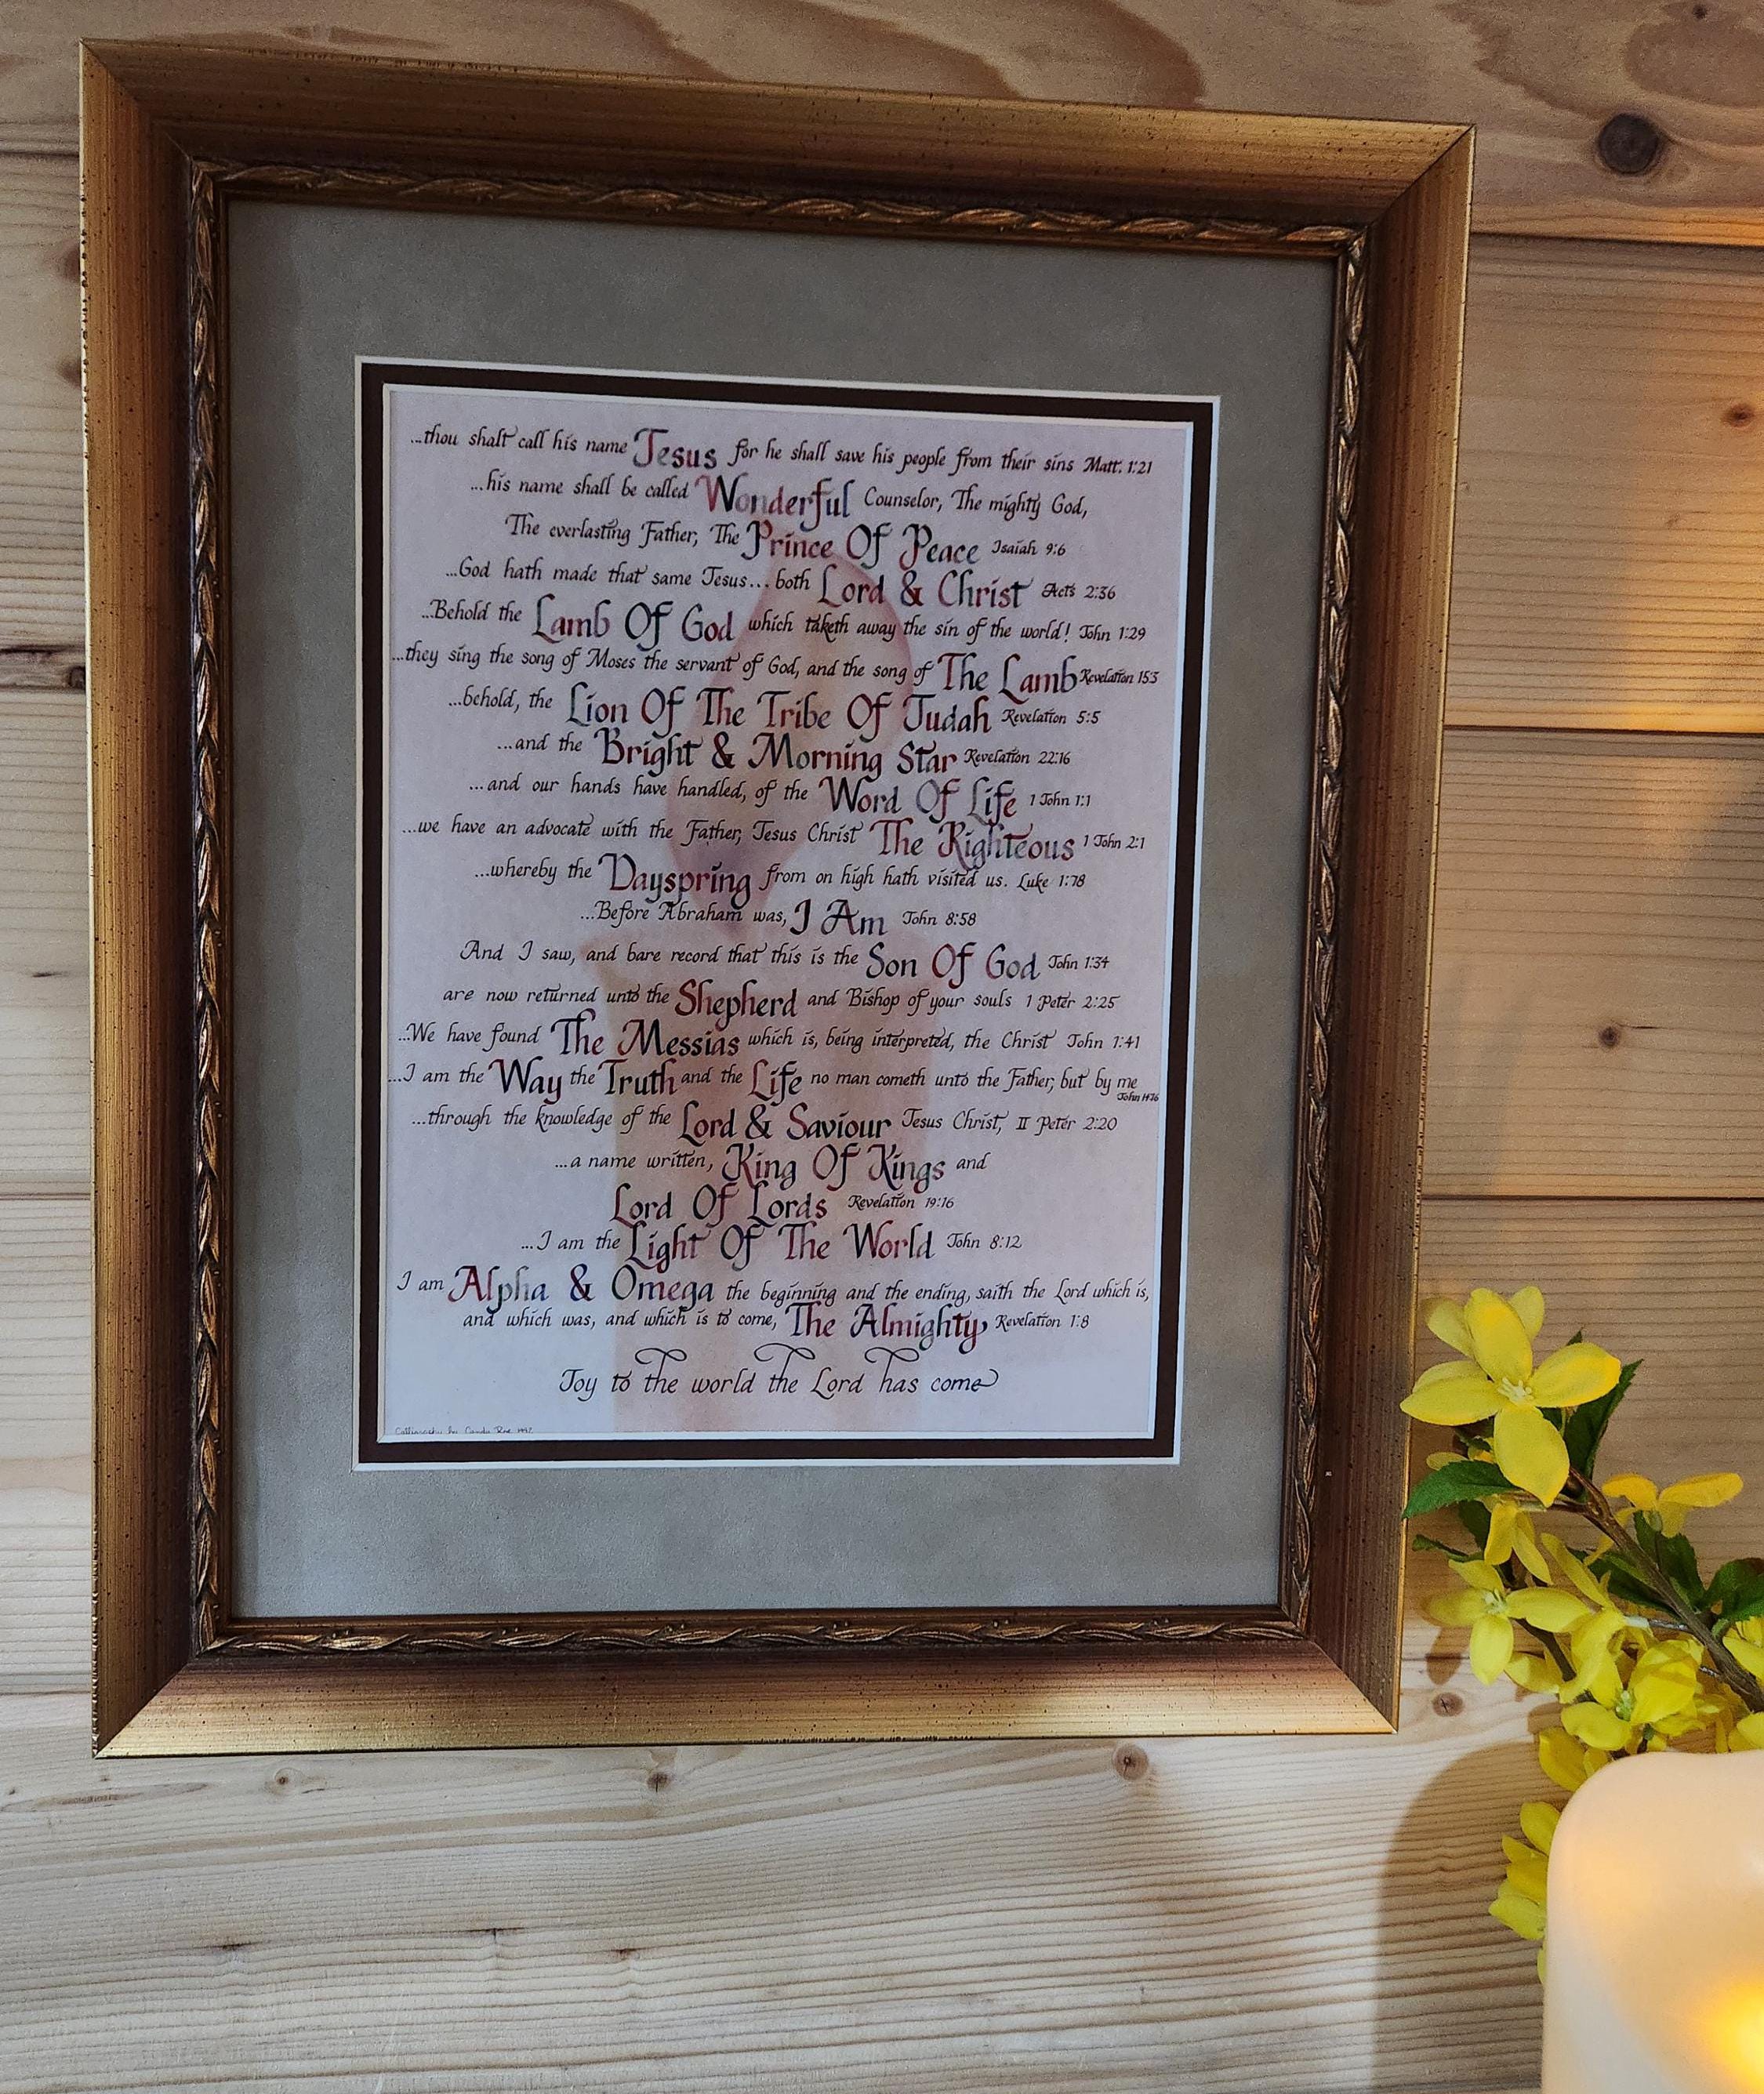 ...thou shalt call his name Jesus for he shall save his people from their sins Matt. 1:21
...his name shall be called Wonderful Counselor, The mighty God,
The everlasting Father, The Prince Of Peace Isaiah 9:6
...God hath made that same Jesus... both Lord & Christ Acts 2:36
...Behold the Lamb Of God which taketh away the sin of the world! John 1:29
...they sing the song of Moses the servant of God, and the song of The Lamb Revelation 15:3
...behold, the Lion Of The Tribe Of Judah Revelation 5:5
...and the Bright & Morning Star Revelation 22:16
...and our hands have handled, of the Word Of Life 1 John 1:1
...we have an advocate with the Father, Jesus Christ The Righteous 1 John 2:1
...whereby the Dayspring from on high hath visited us. Luke 1:78
...Before Abraham was, I Am John 8:58
And I saw, and bare record that this is the Son Of God John 1:34
are now returned unto the Shepherd and Bishop of your souls 1 Peter 2:25
...We have found The Messias which is, being interpreted, the Christ John 1:41
...I am the Way the Truth and the Life no man cometh unto the Father, but by me
John
...through the knowledge of the Lord & Saviour Jesus Christ, II Peter 2:20
...a name written, King Of Kings and
Lord Of Lords Revelation 19:16
...I am the Light Of The World John 8:12
I am Alpha & Omega the beginning and the ending, saith the Lord which is,
and which was, and which is to come, The Almighty Revelation 1:8
Joy to the world the Lord has come
Calligraphy by